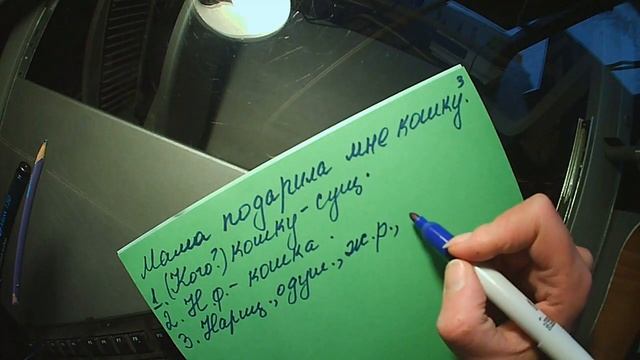 Мама подарила мне кошку.³
1. (Кого?) кошку - сущ.
2. Н.Ф. - кошка.
3. Нариц., одуш., ж.р.,